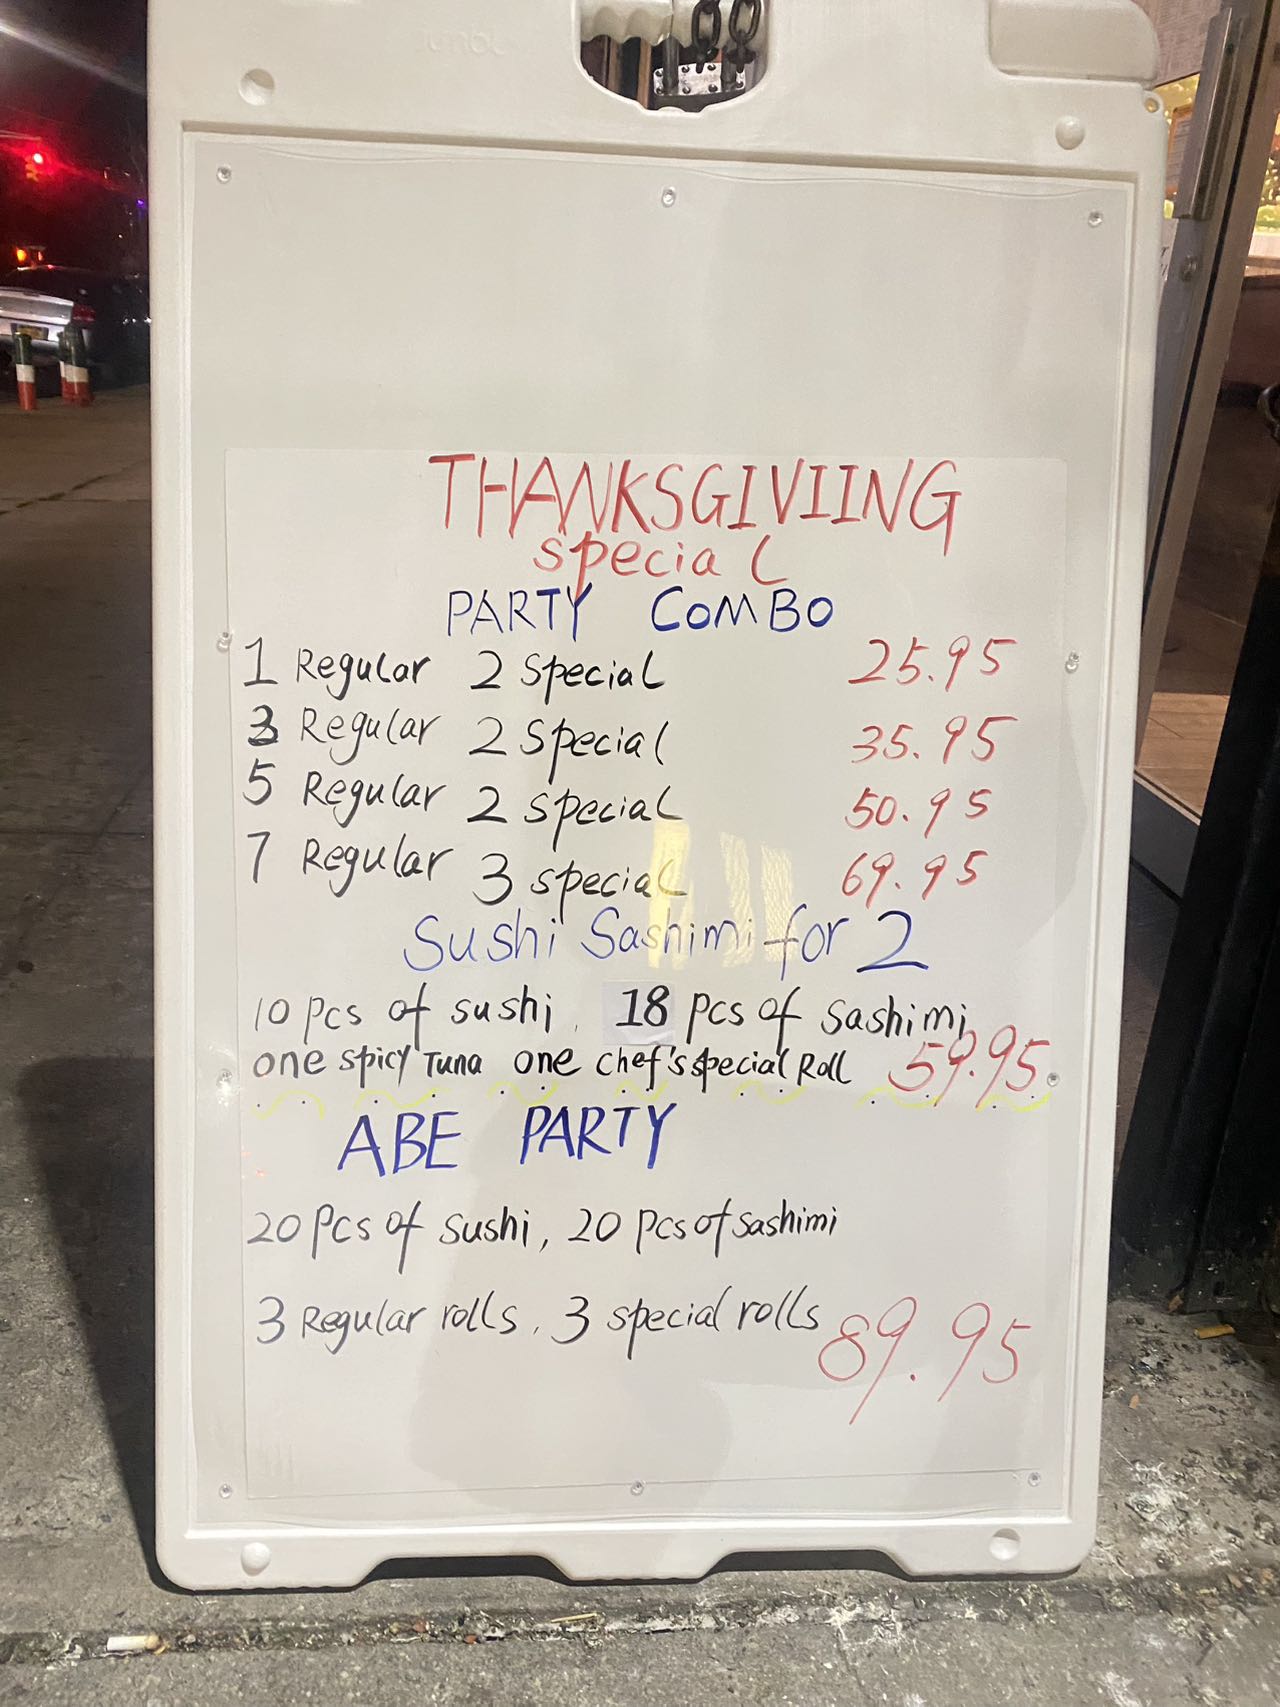 THANKSGIVIING
special
PARTY COMBO
1 Regular 2 special 25.95
3 Regular 2 special 35.95
5 Regular 2 special 50.95
7 Regular 3 special 69.95
Sushi Sashimi for 2
10 pcs of sushi, 18 pcs of sashimi
one spicy Tuna one chef's special Roll 59.95
ABE PARTY
20 pcs of sushi, 20 pcs of sashimi
3 Regular rolls, 3 special rolls 89.95